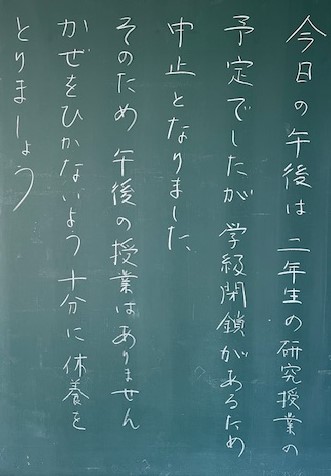 今日の午後は 二年生の研究授業の
予定でしたが 学級閉鎖があるため
中止となりました、
そのため 午後の授業はありません
かぜをひかないよう 十分に 休養を
とりましょう